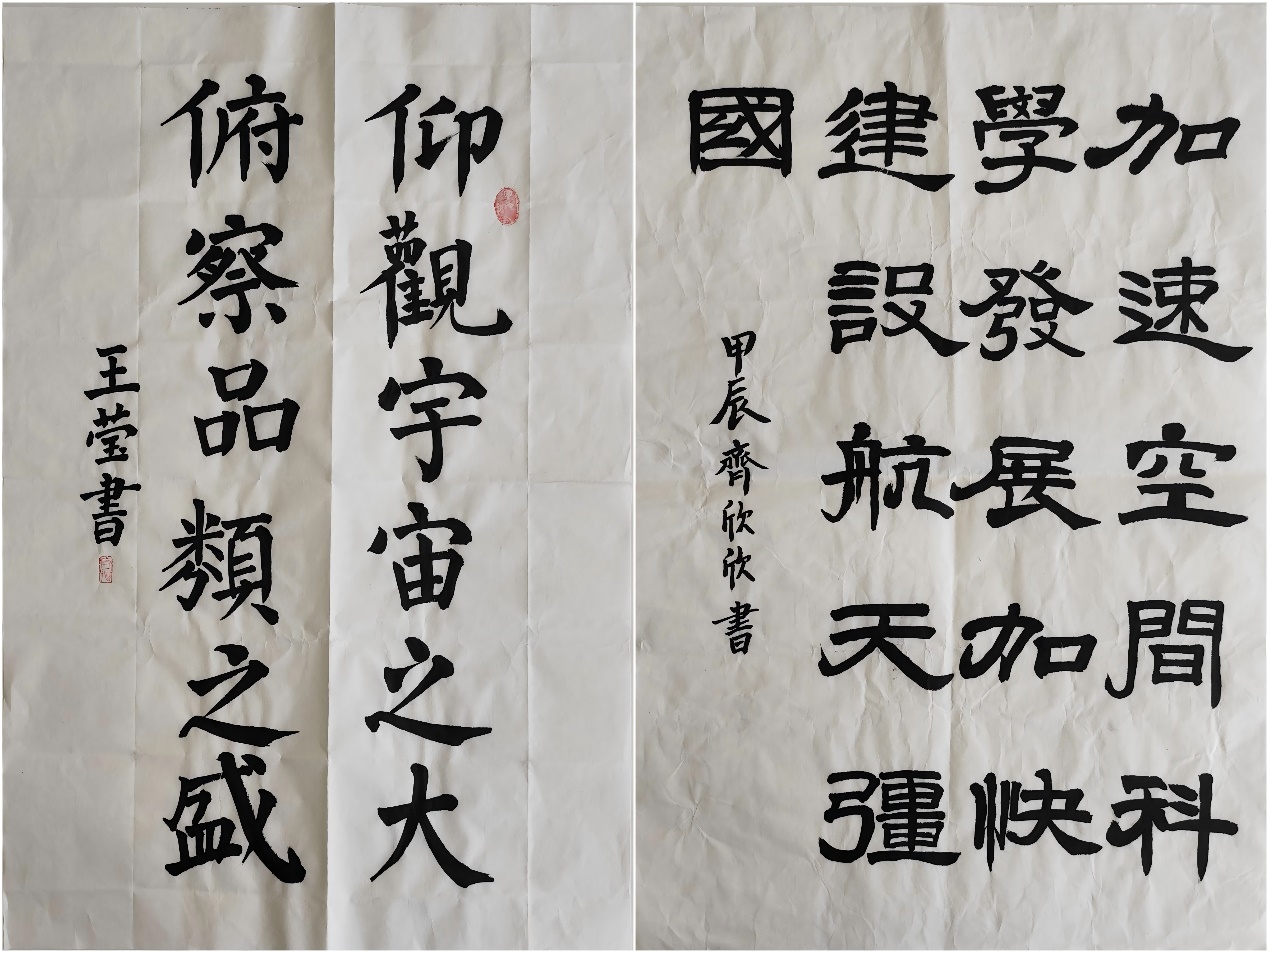 仰觀宇宙之大
俯察品類之盛
王莹書
加速空間科
學發展加快
建設航天彊
國
甲辰齊欣欣書